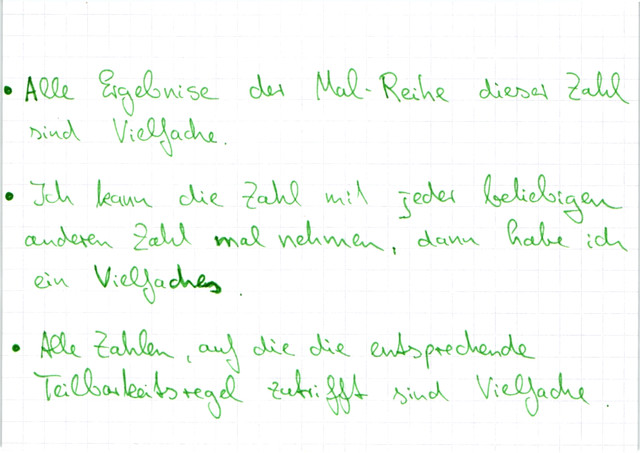 • Alle Ergebnise der Mal-Reihe dieser Zahl
sind Vielfache.
• Ich kann die Zahl mit jeder beliebigen
anderen Zahl mal nehmen, dann habe ich
ein Vielfaches.
• Alle Zahlen, auf die die entsprechende
Teilbarkeitsregel zutrifft sind Vielfache.